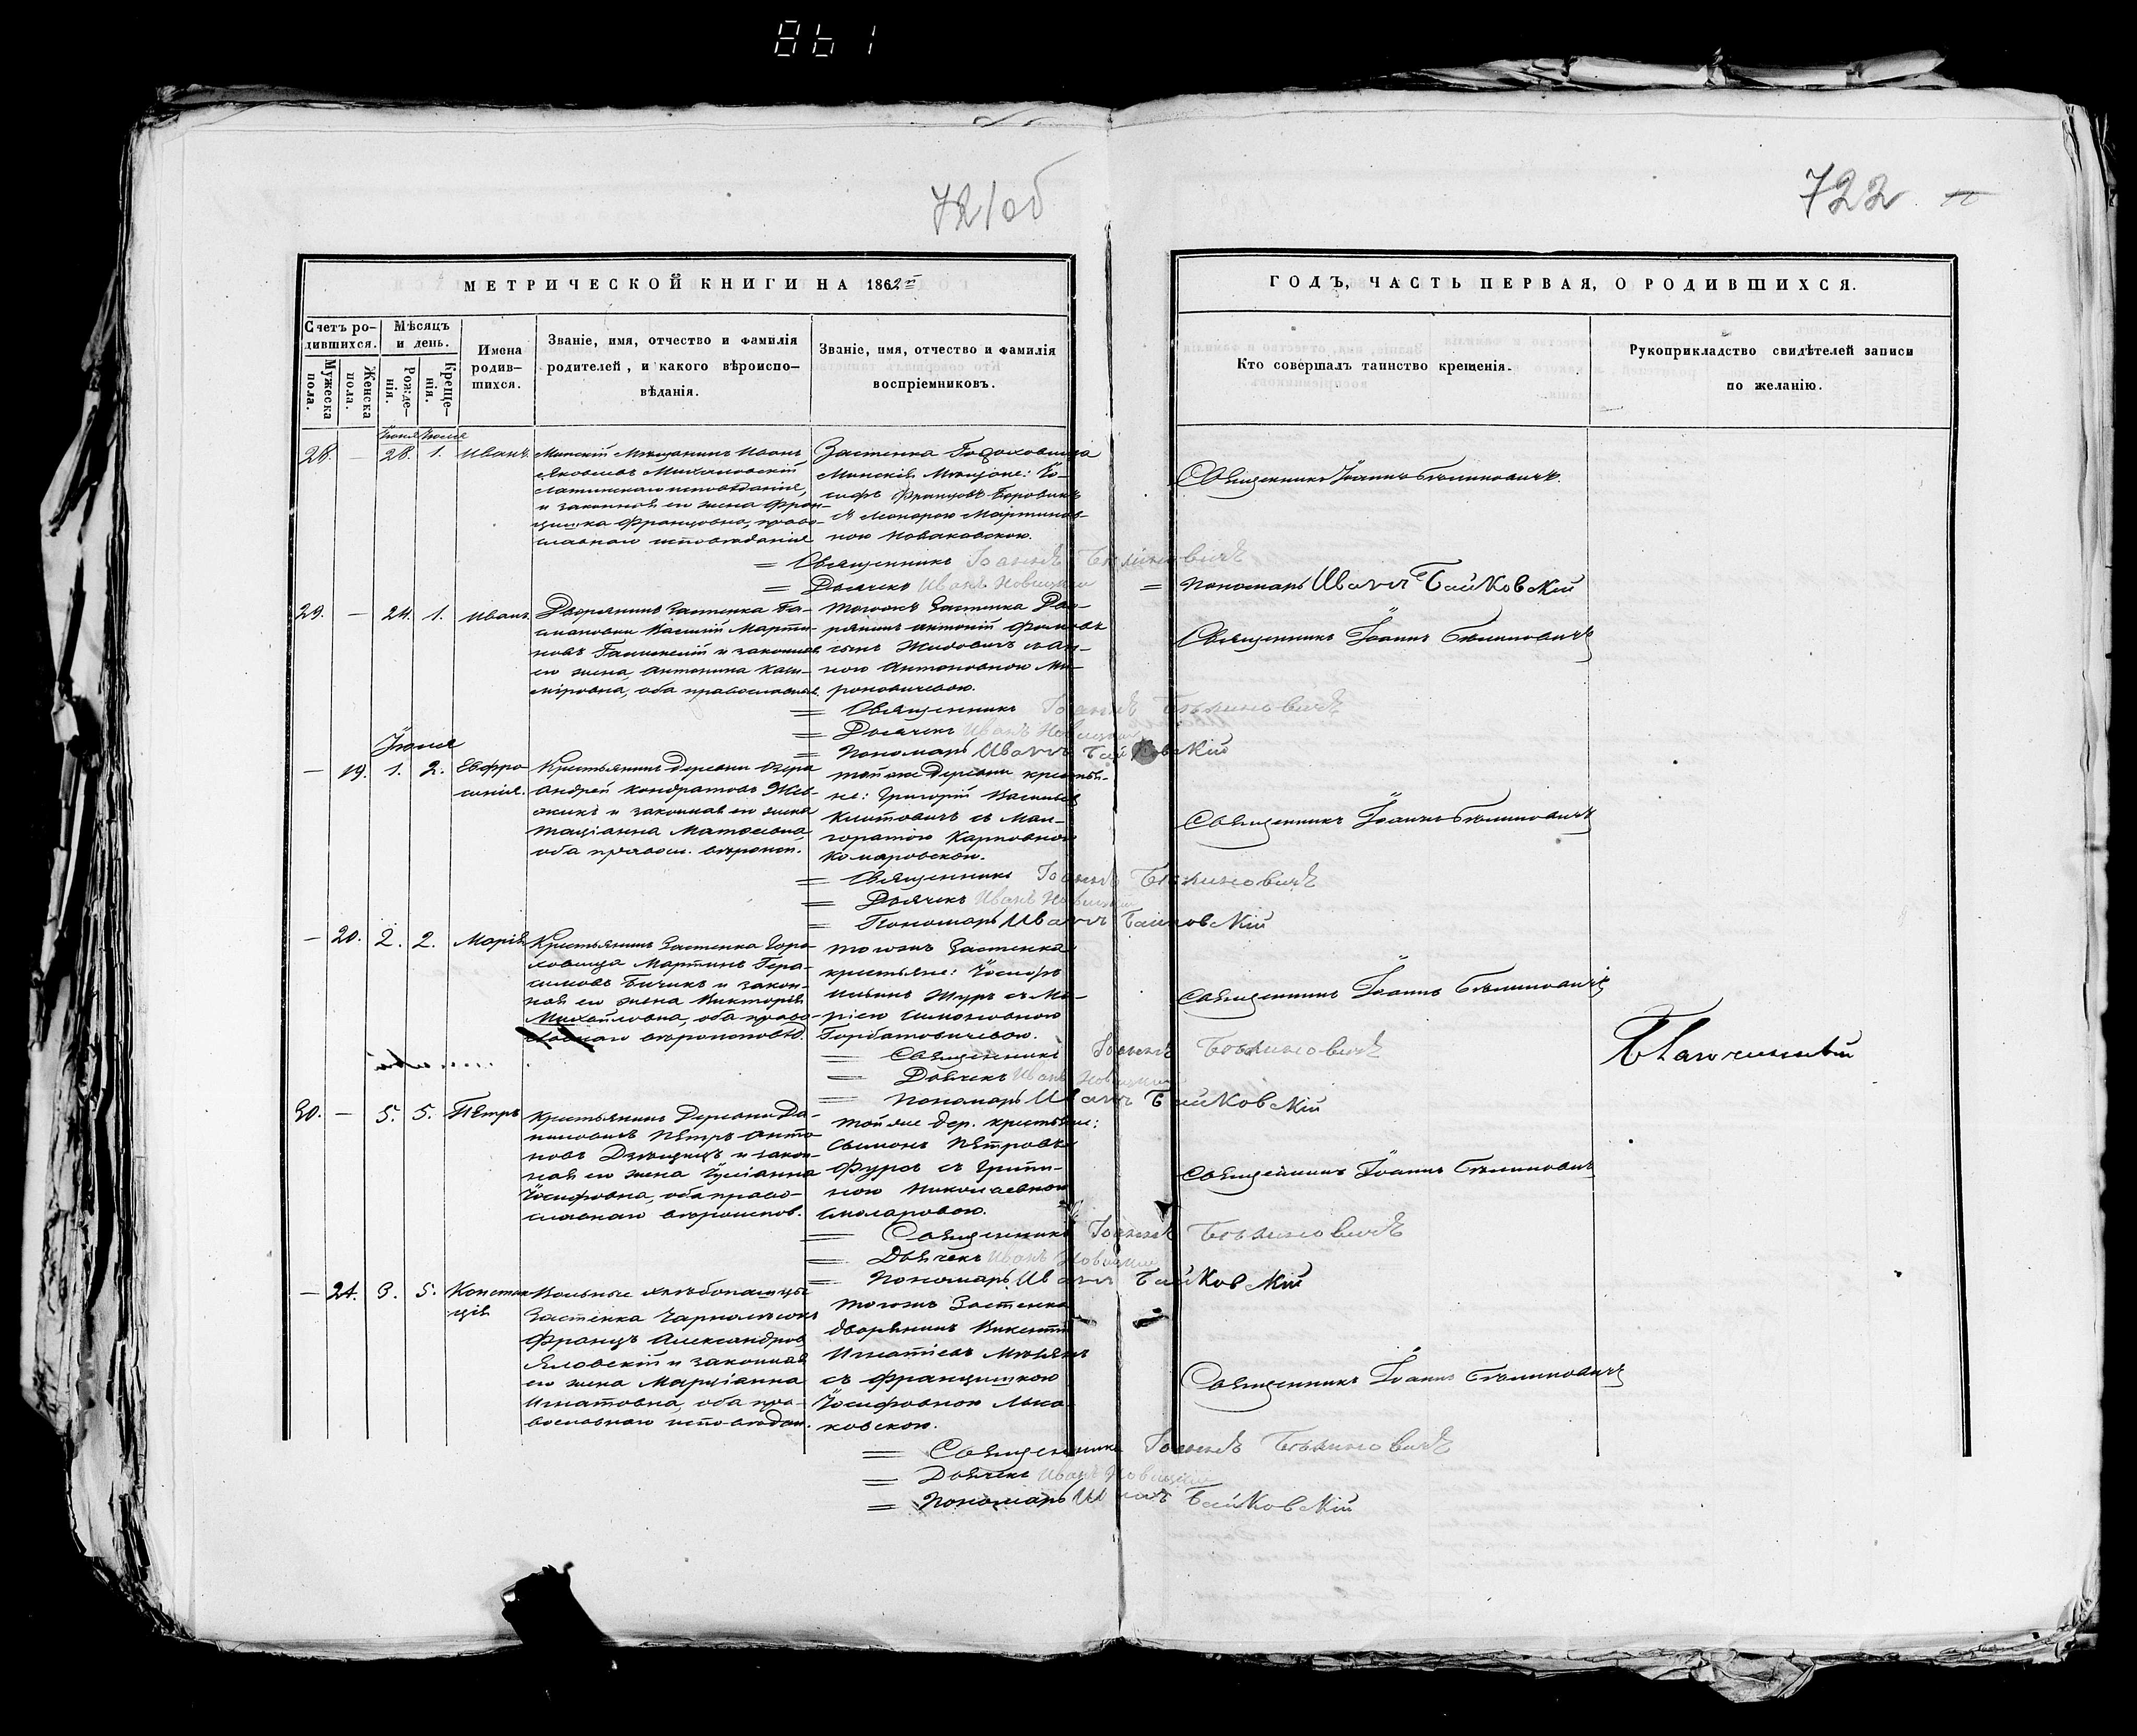 861
721об
722
МЕТРИЧЕСКОЙ КНИГИ НА 1862й
Счетъ ро-
дившихся.
Мужеска
пола.
Женска
пола.
Мѣсяцъ
и день.
Рожде-
нія.
Креще-
нія.
Имена
родив-
шихся.
Званіе, имя, отчество и фамилія
родителей, и какого вѣроиспо-
вѣданія.
Званіе, имя, отчество и фамилія
воспріемниковъ.
ГОДЪ, ЧАСТЬ ПЕРВАЯ, О РОДИВШИХСЯ.
Кто совершалъ таинство крещенія.
Рукоприкладство свидѣтелей записи
по желанію.
Іюня Іюля
28. — 28. 1. Иванъ.
Минскій Мѣщанинъ Иванъ
Яковлевъ
латинскаго исповѣданія,
и законная его жена Фран-
цишка Францовна, право-
славнаго исповѣданія
Застенка
Минскіе Мѣщане: Іо-
сифъ Францовъ Боровикъ
съ Мартинов-
ною Новаковскою.
Священникъ Іоаннъ Бѣлиновичъ.
= Священникъ Іоаннъ Бѣлиновичъ
= Дьячекъ Иванъ Новицкій
= Пономарь Иванъ Байковскій
29. — 24. 1. Иванъ.
Дворянинъ Застенка Га-
Василій Марти-
новъ и законная
его жена Антонина Кази-
мировна, оба православные.
тогожъ Застенка Дво-
рянинъ Антоній
сынъ съ Ан-
ною Антоновною Ми-
роновичевою.
Священникъ Іоаннъ Бѣлиновичъ
= Священникъ Іоаннъ Бѣлиновичъ
= Дьячекъ Иванъ Новицкій
= Пономарь Иванъ Байковскій
Іюля
— 19. 1. 2. Евфро-
синія.
Крестьянинъ деревни Озера
Андрей Кондратовъ
и законная его жена
Таціанна Матѳеевна
оба правосл. вѣроисп.
тойже деревни крестья-
не: Григорій Васильев
съ Мал-
Карповною
Комаровскою.
Священникъ Іоаннъ Бѣлиновичъ
= Священникъ Іоаннъ Бѣлиновичъ
= Дьячекъ Иванъ Новицкій
= Пономарь Иванъ Байковскій
— 20. 2. 2. Марія
Крестьянинъ Застенка
Мартинъ Гера-
симовъ Бичикъ и закон-
ная его жена Викторія
Михайловна, оба право-
славнаго вѣроисповѣд.
тогожъ Застенка
крестьяне: Іосифъ
Ильинъ Журъ съ Ма-
ріею Симоновною
Горбатовичевою.
Священникъ Іоаннъ Бѣлиновичъ
= Священникъ Іоаннъ Бѣлиновичъ
= Дьячекъ Иванъ Новицкій
= Пономарь Иванъ Байковскій
30. — 5. 5. Петръ
Крестьянинъ деревни Да-
ниловичъ Петръ Анто-
новъ и закон-
ная его жена Іуліанна
Іосифовна, оба право-
славнаго вѣроиспов.
той же дер. крестьяне:
Симонъ Петровъ
Фурсъ съ
ною Николаевною
Столяровою.
Священникъ Іоаннъ Бѣлиновичъ
= Священникъ Іоаннъ Бѣлиновичъ
= Дьячекъ Иванъ Новицкій
= Пономарь Иванъ Байковскій
— 21. 3. 5. Констан-
ція
Вольные хлѣбопашцы
Застенка
Францъ Александров
Яловскій и законная
его жена Марціанна
Игнатовна, оба пра-
вославнаго исповѣдан.
тогожъ Застенка
дворянинъ Викентій
Игнатіевъ
съ Францишкою
Іосифовною
ковскою.
Священникъ Іоаннъ Бѣлиновичъ
= Священникъ Іоаннъ Бѣлиновичъ
= Дьячекъ Иванъ Новицкій
= Пономарь Иванъ Байковскій